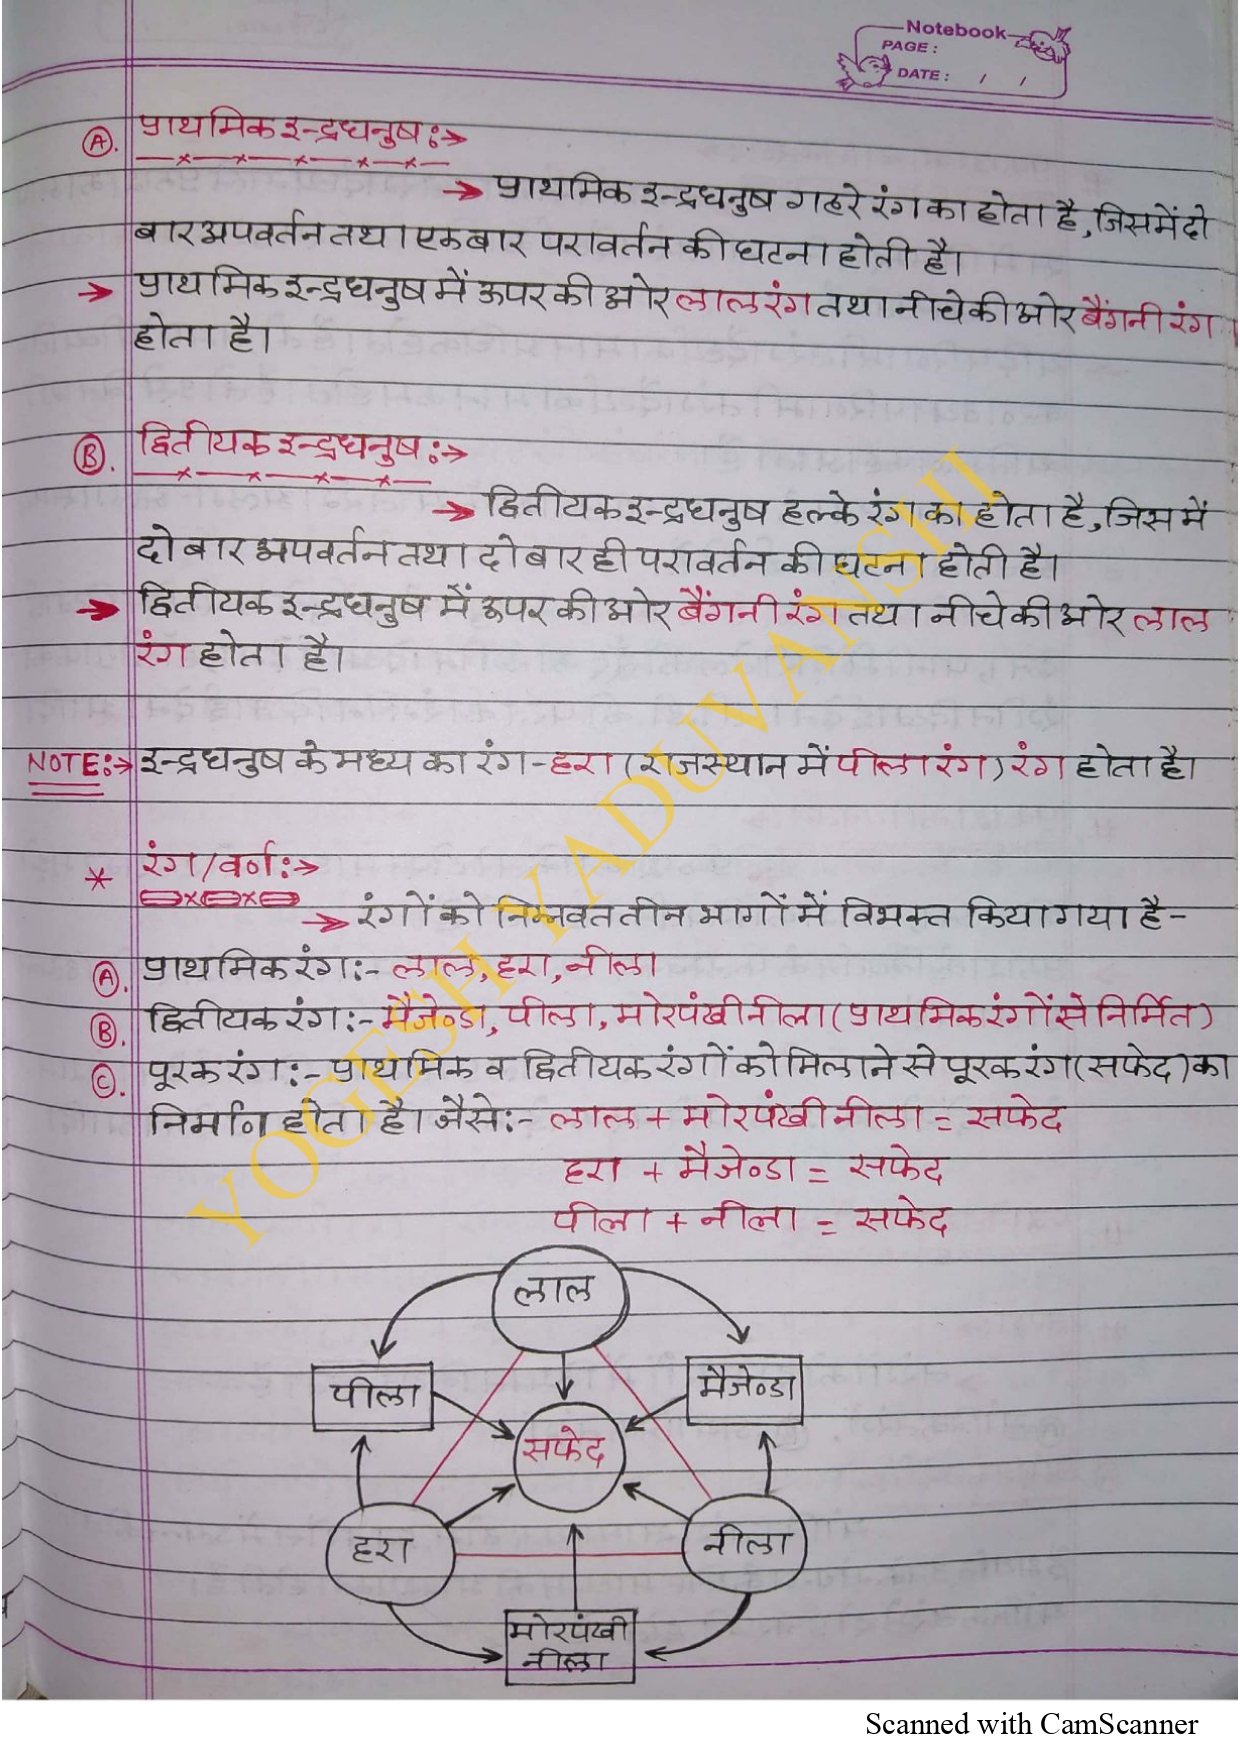 Notebook
PAGE :
DATE : / /
Ⓐ. प्राथमिक इन्द्रधनुष :→
→ प्राथमिक इन्द्रधनुष गहरे रंग का होता है, जिसमें दो
बार अपवर्तन तथा एक बार परावर्तन की घटना होती है।
→ प्राथमिक इन्द्रधनुष में ऊपर की ओर लाल रंग तथा नीचे की ओर बैंगनी रंग
होता है।
Ⓑ. द्वितीयक इन्द्रधनुष :→
→ द्वितीयक इन्द्रधनुष हल्के रंग का होता है, जिस में
दो बार अपवर्तन तथा दो बार ही परावर्तन की घटना होती है।
→ द्वितीयक इन्द्रधनुष में ऊपर की ओर बैंगनी रंग तथा नीचे की ओर लाल
रंग होता है।
NOTE:→ इन्द्रधनुष के मध्य का रंग - हरा (राजस्थान में पीला रंग) रंग होता है।
* रंग/वर्ण :→
→ रंगों को निम्नवत तीन भागों में विभक्त किया गया है -
Ⓐ. प्राथमिक रंग :- लाल, हरा, नीला
Ⓑ. द्वितीयक रंग :- मैजेण्डा, पीला, मोरपंखी नीला (प्राथमिक रंगों से निर्मित)
Ⓒ. पूरक रंग :- प्राथमिक व द्वितीयक रंगों को मिलाने से पूरक रंग (सफेद) का
निर्माण होता है। जैसे :- लाल + मोरपंखी नीला = सफेद
हरा + मैजेण्डा = सफेद
पीला + नीला = सफेद
लाल
पीला
मैजेण्डा
सफेद
हरा
नीला
मोरपंखी
नीला
YOGESH YADUVANSHI
Scanned with CamScanner